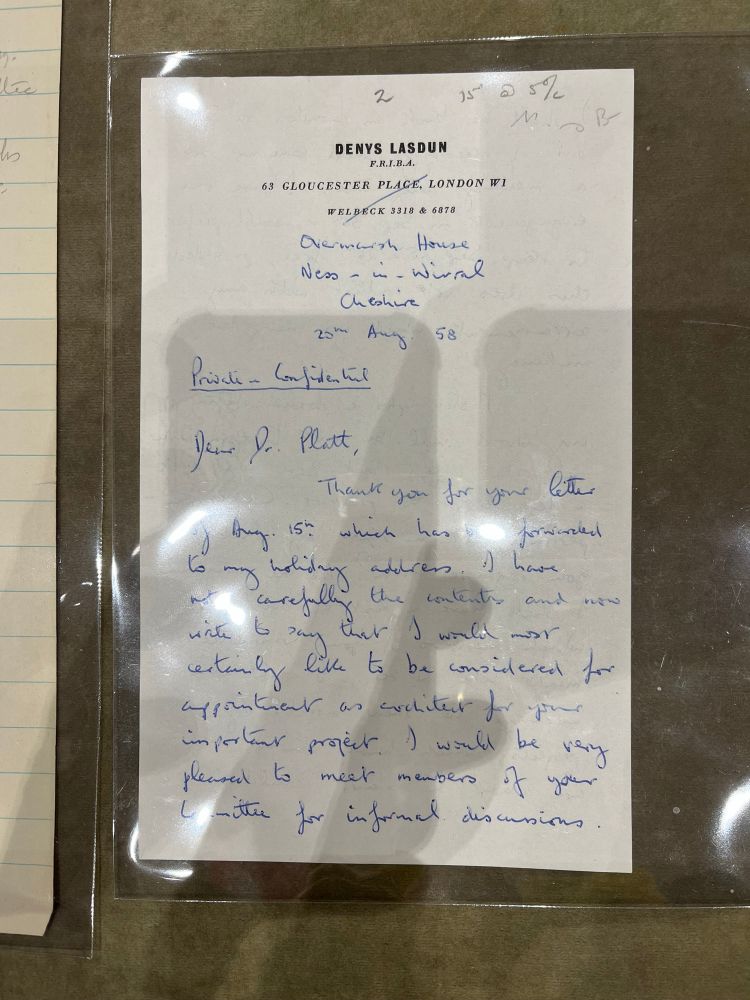 2
DENYS LASDUN
F.R.I.B.A.
63 GLOUCESTER PLACE, LONDON W1
WELBECK 3318 & 6878
Overmarsh House
Ness - in - Wirral
Cheshire
Aug. 58
Private - Confidential
Dear Dr. Platt,
Thank you for your letter
of Aug. 15th which has forwarded
to my holiday address. I have
carefully the contents and now
write to say that I would most
certainly like to be considered for
appointment as architect for your
important project. I would be very
pleased to meet members of your
Committee for informal discussions.